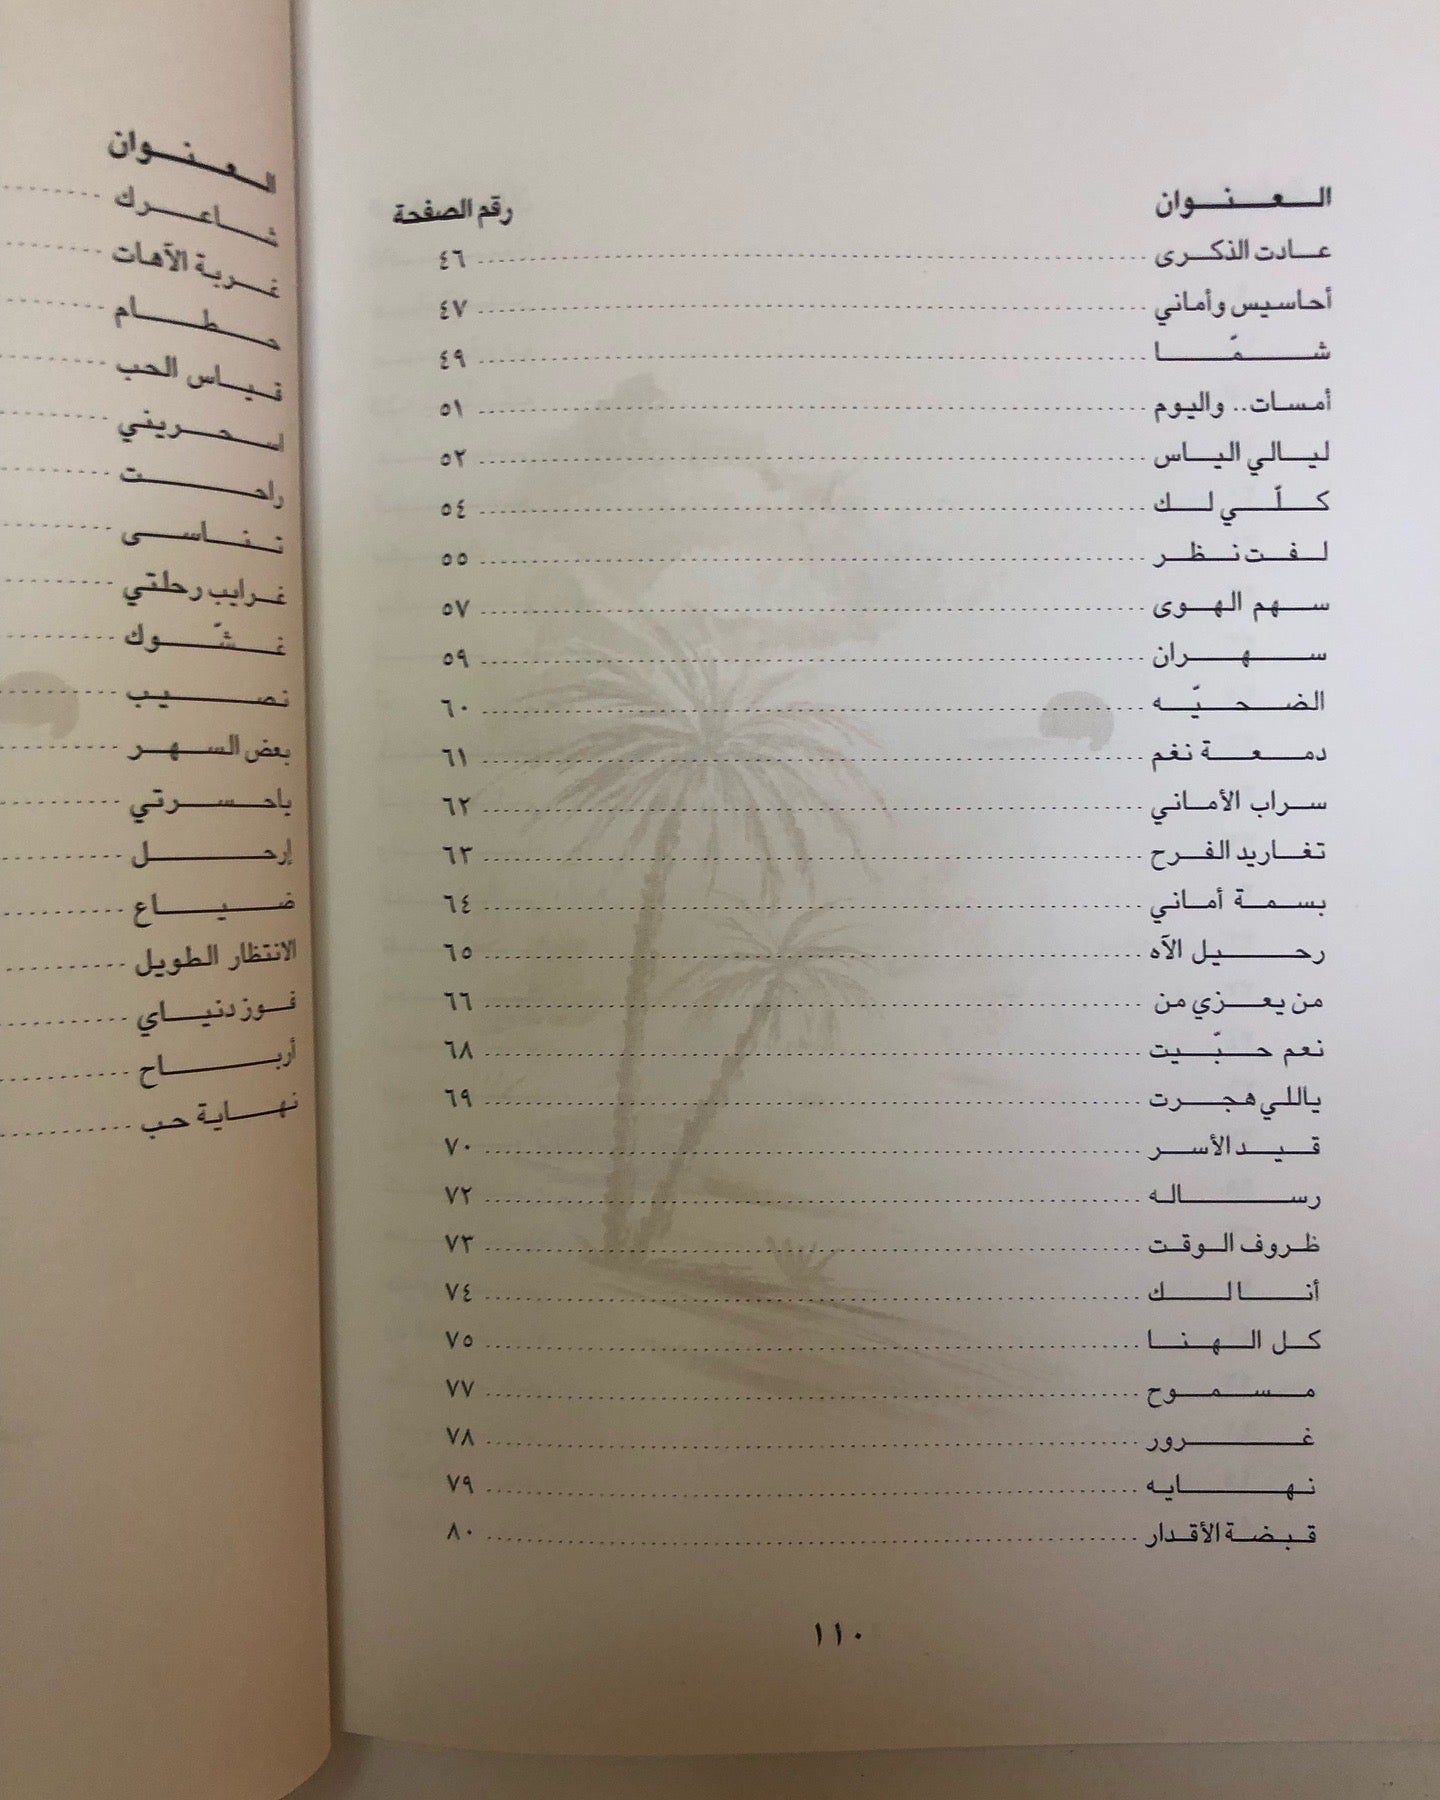 العنوان رقم الصفحة
عادت الذكرى ٤٦
أحاسيس وأماني ٤٧
شمّا ٤٩
أمسات.. واليوم ٥١
ليالي الياس ٥٢
كلّي لك ٥٤
لفت نظر ٥٥
سهم الهوى ٥٧
سهران ٥٩
الضحيّه ٦٠
دمعة نغم ٦١
سراب الأماني ٦٢
تغاريد الفرح ٦٣
بسمة أماني ٦٤
رحيل الآه ٦٥
من يعزي من ٦٦
نعم حبّيت ٦٨
ياللي هجرت ٦٩
قيد الأسر ٧٠
رساله ٧٢
ظروف الوقت ٧٣
أنا لك ٧٤
كل الهنا ٧٥
مسموح ٧٧
غرور ٧٨
نهايه ٧٩
قبضة الأقدار ٨٠
١١٠
العنوان
شاعرك
غربة الآهات
حطام
قياس الحب
اسحريني
راحت
تناسى
غرايب رحلتي
غشّوك
نصيب
بعض السهر
ياحسرتي
إرحل
ضياع
الانتظار الطويل
فوز دنياي
أرباح
نهاية حب